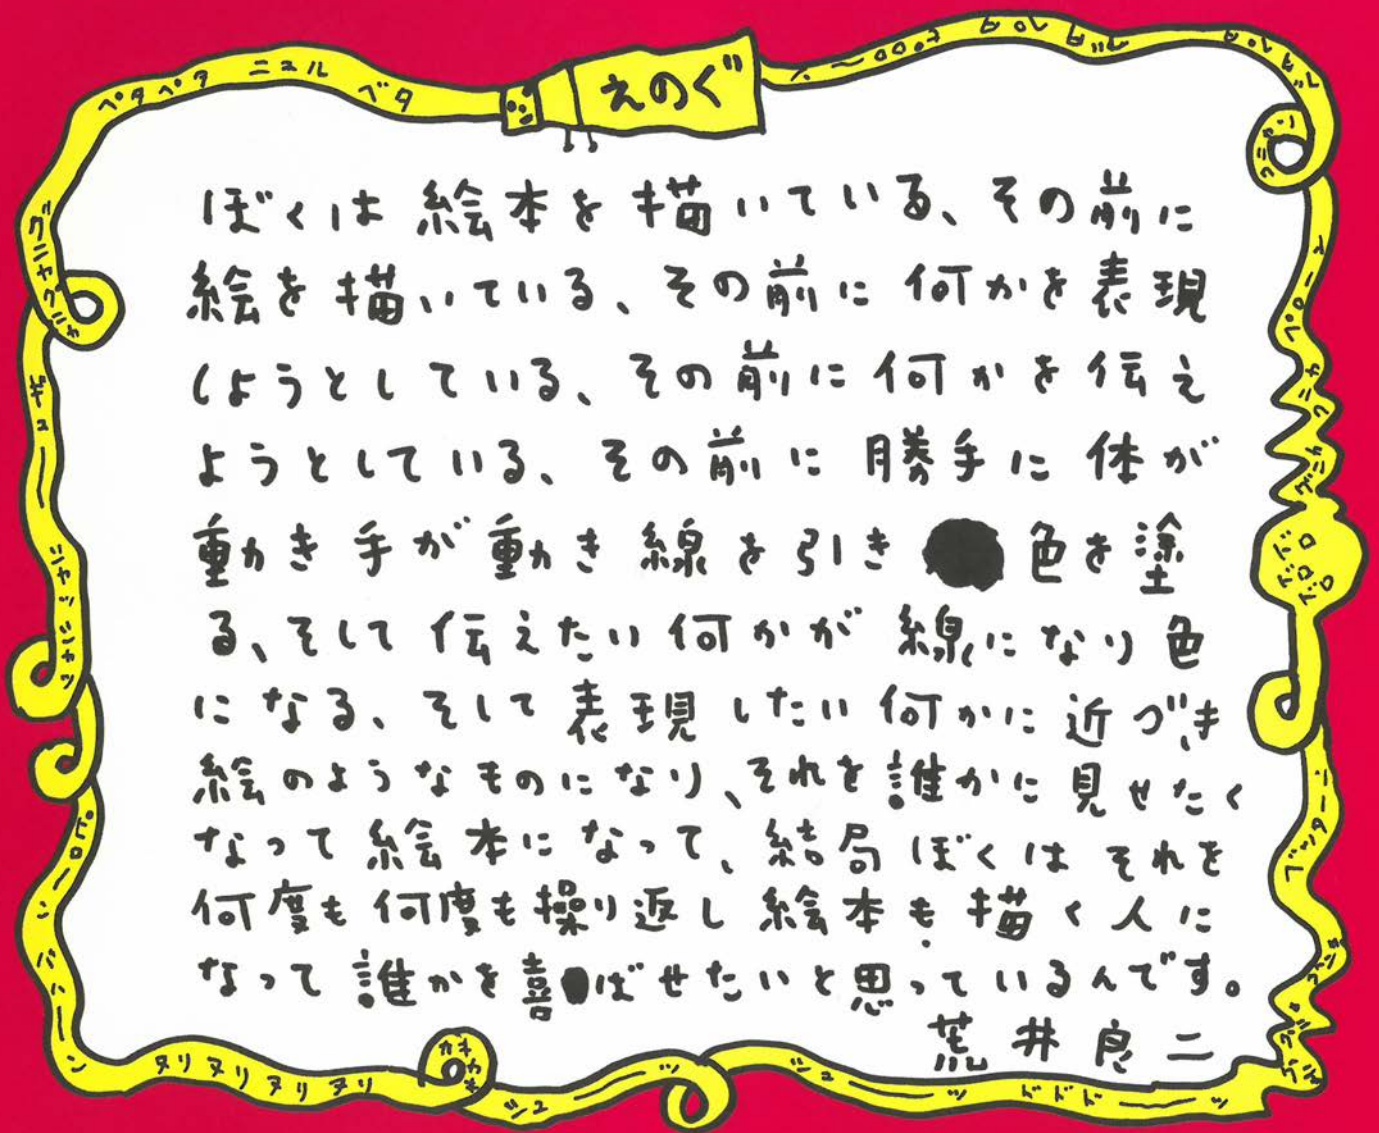 えのぐ
ペタペタ
ニュル
ベタ
ぼくは絵本を描いている、その前に
絵を描いている、その前に何かを表現
しようとしている、その前に何かを伝え
ようとしている、その前に勝手に体が
動き手が動き線を引き 色を塗
る、そして伝えたい何かが線になり色
になる、そして表現したい何かに近づき
絵のようなものになり、それを誰かに見せたく
なって絵本になって、結局ぼくはそれを
何度も何度も操り返し絵本も描く人に
なって誰かを喜ばせたいと思っているんです。
荒井良二
グニャグニャ
ギューー
ヌリヌリヌリヌリ
ドドド